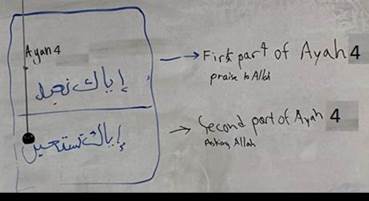 Ayah 4
First part of Ayah 4
praise to Allah
إياك نعبد
Second part of Ayah 4
Asking Allah
إياك نستعين